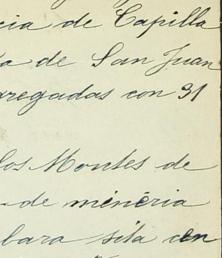 cia de Capilla
a de San Juan
regadas con 31
los Montes de
de minéria
bara sita en